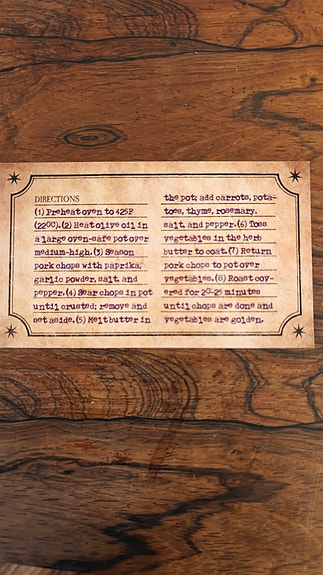 DIRECTIONS
(1) Preheat oven to 425F
(220C). (2) Heat olive oil in
a large oven-safe pot over
medium-high. (3) Season
pork chops with paprika,
garlic powder, salt, and
pepper. (4) Sear chops in pot
until crusted; remove and
set aside. (5) Melt butter in
the pot; add carrots, pota-
toes, thyme, rosemary,
salt, and pepper. (6) Toss
vegetables in the herb
butter to coat. (7) Return
pork chops to pot over
vegetables. (8) Roast cov-
ered for 20-25 minutes
until chops are done and
vegetables are golden.